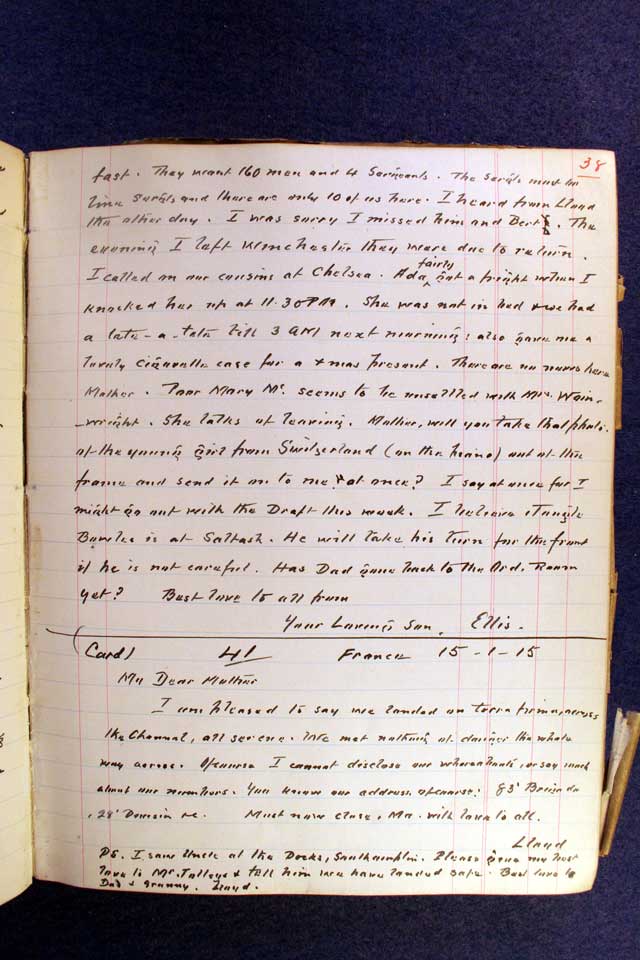 38
fast. They want 160 men and 4 Sergeants. The sergts must be
line sergts and there are only 10 of us here. I heard from Lloyd
the other day. I was sorry I missed him and Bert. The
evening I left Winchester they were due to return.
I called on our cousins at Chelsea. Ada fairly got a fright when I
knocked her up at 11.30PM. She was not in bed & we had
a tete-a-tete till 3 AM next morning: also gave me a
lovely cigarette case for a Xmas present. There are no nurses here
Mother. Poor Mary Mc. seems to be unsettled with Mrs. Wain-
-wright. She talks of leaving. Mother, will you take that photo.
of the young girl from Switzerland (on the piano) out of the
frame and send it on to me at once? I say at once for I
might go out with the Draft this week. I believe
is at Saltash. He will take his turn for the front
if he is not careful. Has Dad gone back to the Ord. Room
yet? Best love to all from
Your Loving Son, Ellis.
Card) 41 France 15-1-15
My Dear Mother
I am pleased to say we landed on terra firma, across
the Channel, all serene. We met nothing of danger the whole
way across. Of course I cannot disclose our whereabouts, or say much
about our numbers. You know our address of course: 83' Brigade
, 28' Division etc. Must now close, Ma. with love to all.
Lloyd
PS. I saw Uncle at the Docks, Southampton. Please give my best
love to Mr. & tell him we have landed safe. Best love to
Dad & granny. Lloyd.